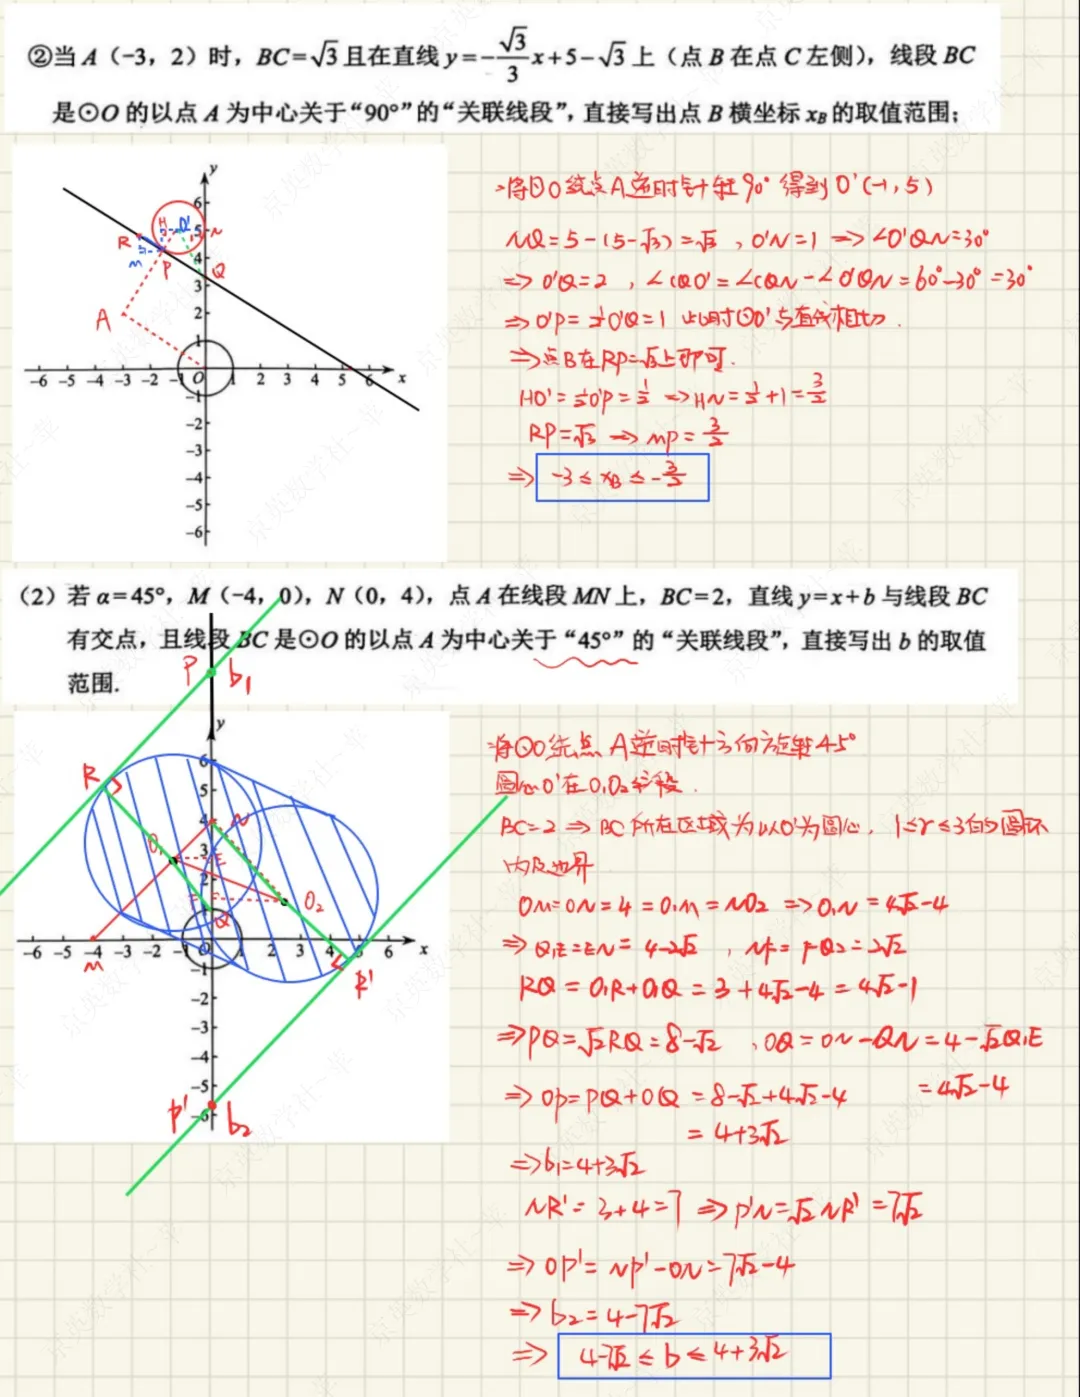 ②当 A（-3，2）时，BC=√3且在直线 y=-√3/3 x+5-√3上（点 B 在点 C 左侧），线段 BC
是⊙O 的以点 A 为中心关于“90°”的“关联线段”，直接写出点 B 横坐标 xB 的取值范围；
将⊙O绕点A逆时针转90°得到O'(-1,5)
NQ=5-(5-√3)=√3，O'N=1 => ∠O'QN=30°
=> O'Q=2，∠CQO'=∠CQN-∠O'QN=60°-30°=30°
=> O'P=½O'Q=1 此时⊙O'与直线相切.
=> 点B在RP=√3上即可.
HO'=½O'P=½ => HN=½+1=3/2
RP=√3 => MP=3/2
=> -3≤xB≤-3/2
y
6
5
4
3
2
1
H
O'
N
R
M
P
Q
A
-6 -5 -4 -3 -2 -1 O 1 2 3 4 5 6 x
-1
-2
-3
-4
-5
-6
（2）若 α=45°，M（-4，0），N（0，4），点 A 在线段 MN 上，BC=2，直线 y=x+b 与线段 BC
有交点，且线段 BC 是⊙O 的以点 A 为中心关于“45°”的“关联线段”，直接写出 b 的取值
范围.
P b₁
将⊙O绕点A逆时针方向旋转45°
圆心O'在O₁O₂线段.
BC=2 => BC所在区域为以O'为圆心，1≤r≤3的圆环
内及边界
OM=ON=4=O₁M=NO₂ => O₁N=4√2-4
=> O₁E=EN=4-2√2，NF=FO₂=2√2
RQ=O₁R+O₁Q=3+4√2-4=4√2-1
=> PQ=√2RQ=8-√2，OQ=ON-QN=4-√2O₁E
=4√2-4
=> OP=PQ+OQ=8-√2+4√2-4
=4+3√2
=> b₁=4+3√2
NR'=3+4=7 => P'N=√2NR'=7√2
=> OP'=NP'-ON=7√2-4
=> b₂=4-7√2
=> 4-7√2≤b≤4+3√2
y
6
5
4
3
2
R
N
O₁
E
F
O₂
Q
-6 -5 -4 -3 -2 -1 O 1 2 3 4 5 6 x
M
R'
-1
-2
-3
-4
-5
-6
P' b₂